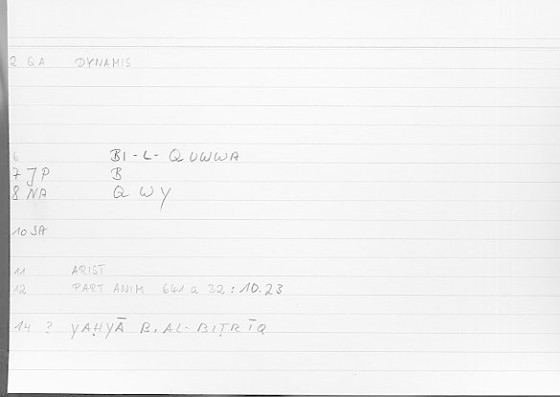 2 QA DYNAMIS
6 BI-L-QUWWA
7 JP B
8 NA QWY
10 SA
11 ARIST
12 PART ANIM 641 a 32 : 10.23
14 ? YAḤYĀ B. AL-BIṬRĪQ